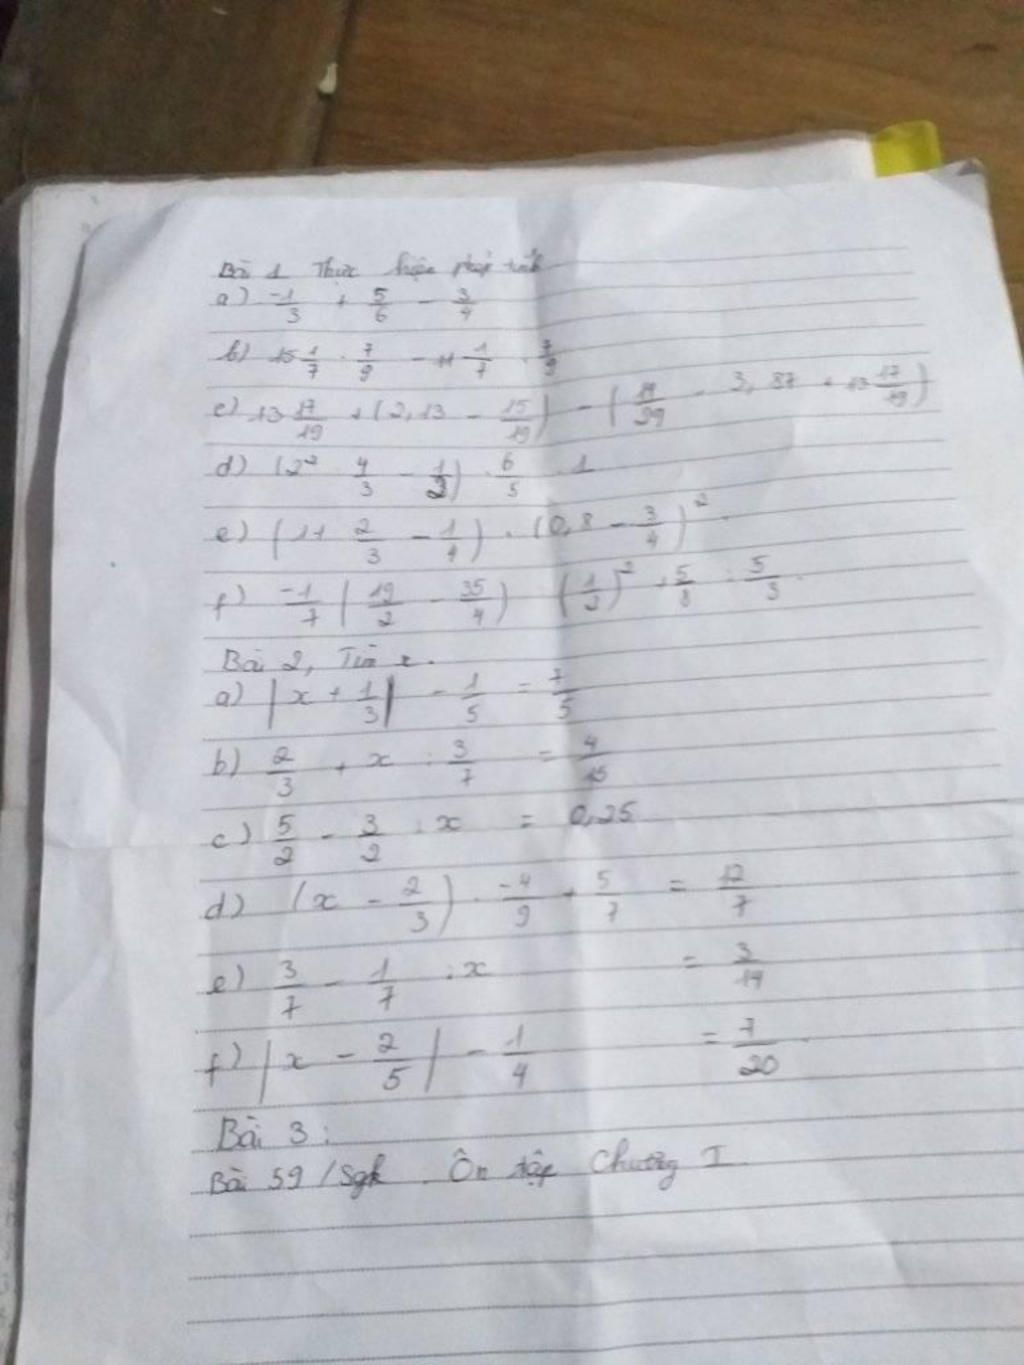 Bài 1 Thực hiện phép tính
a) -1/3 + 5/6 - 3/4
b) 15 1/7 . 7/9 - 11 1/7 . 7/9
c) 13 17/19 + (2,13 - 15/19) - ( - 3,87 + 13 17/19)
d) (2² . 4/3 - 1/2) . 6/5 . 1
e) (1 + 2/3 - 1/4) . (0,8 - 3/4)²
f) -1/7 (19/2 - 35/4) (1/2)² + 5/8 : 5/3
Bài 2, Tìm x.
a) |x + 1/3| - 1/5 = 7/5
b) 2/3 + x : 3/7 = 4/15
c) 5/2 - 3/2 : x = 0,25
d) (x - 2/3) . -4/9 + 5/7 = 12/7
e) 3/7 - 1/7 : x = 3/14
f) |x - 2/5| - 1/4 = 7/20
Bài 3 :
Bài 59 / Sgk . Ôn tập Chương I